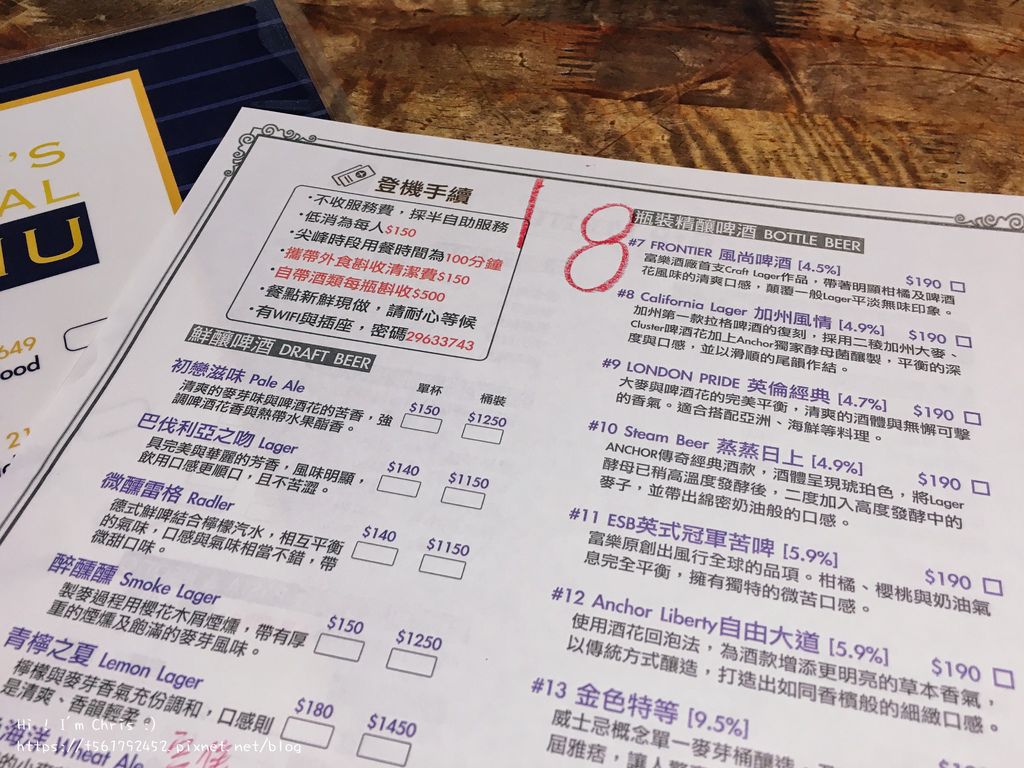 'S
AL
U
649
ood
2'
登機手續
·不收服務費，採半自助服務
·低消為每人$150
·尖峰時段用餐時間為100分鐘
·攜帶外食斟收清潔費$150
·自帶酒類每瓶斟收$500
·餐點新鮮現做，請耐心等候
·有WIFI與插座，密碼29633743
鮮釀啤酒 DRAFT BEER
單杯 桶裝
初戀滋味 Pale Ale
清爽的麥芽味與啤酒花的苦香，強
調啤酒花香與熱帶水果酯香。
$150 $1250
巴伐利亞之吻 Lager
具完美與華麗的芳香，風味明顯，
飲用口感更順口，且不苦澀。
$140 $1150
微醺雷格 Radler
德式鮮啤結合檸檬汽水，相互平衡
的氣味，口感與氣味相當不錯，帶
微甜口味。
$140 $1150
醉醺醺 Smoke Lager
製麥過程用櫻花木屑煙燻，帶有厚
重的煙燻及飽滿的麥芽風味。
$150 $1250
青檸之夏 Lemon Lager
檸檬與麥芽香氣充份調和，口感則
是清爽、香韻輕柔
$180 $1450
海洋 Wheat Ale
18
瓶裝精釀啤酒 BOTTLE BEER
#7 FRONTIER 風尚啤酒 [4.5%]
富樂酒廠首支Craft Lager作品，帶著明顯柑橘及啤酒
花風味的清爽口感，顛覆一般Lager平淡無味印象。
$190
#8 California Lager 加州風情 [4.9%]
加州第一款拉格啤酒的復刻，採用二稜加州大麥、
Cluster啤酒花加上Anchor獨家酵母菌釀製，平衡的深
度與口感，並以滑順的尾韻作結。
$190
#9 LONDON PRIDE 英倫經典 [4.7%]
大麥與啤酒花的完美平衡，清爽的酒體與無懈可擊
的香氣。適合搭配亞洲、海鮮等料理。
$190
#10 Steam Beer 蒸蒸日上 [4.9%]
ANCHOR傳奇經典酒款，酒體呈現琥珀色，將Lager
酵母已稍高溫度發酵後，二度加入高度發酵中的
麥子，並帶出綿密奶油般的口感。
$190
#11 ESB英式冠軍苦啤 [5.9%]
富樂原創出風行全球的品項。柑橘、櫻桃與奶油氣
息完全平衡，擁有獨特的微苦口感。
$190
#12 Anchor Liberty自由大道 [5.9%]
使用酒花回泡法，為酒款增添更明亮的草本香氣，
以傳統方式釀造，打造出如同香檳般的細緻口感。
$190
#13 金色特等 [9.5%]
威士忌概念單一麥芽桶釀造
屆雅痞，讓人
Hi,! I´m Chris :)
https://t561792452.pixnet.net/blog